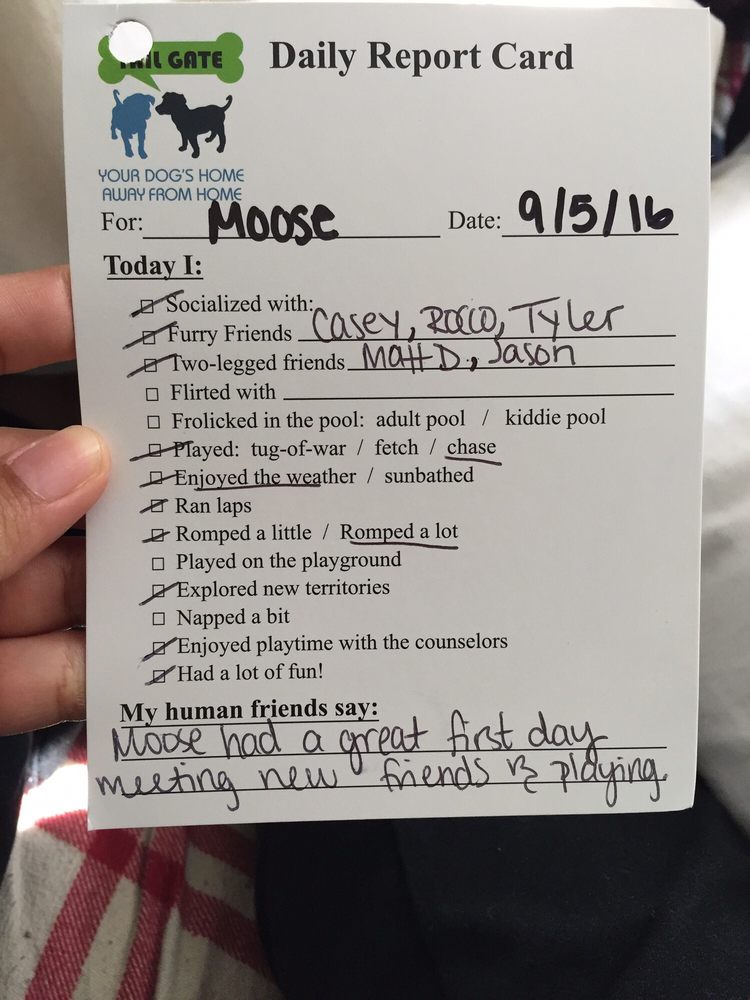 TAIL GATE
Daily Report Card
YOUR DOG'S HOME
AWAY FROM HOME
For: Moose Date: 9/5/16
Today I:
Socialized with:
Furry Friends Casey, Rocco, Tyler
Two-legged friends Matt D., Jason
Flirted with
Frolicked in the pool: adult pool / kiddie pool
Played: tug-of-war / fetch / chase
Enjoyed the weather / sunbathed
Ran laps
Romped a little / Romped a lot
Played on the playground
Explored new territories
Napped a bit
Enjoyed playtime with the counselors
Had a lot of fun!
My human friends say:
Moose had a great first day
meeting new friends & playing.